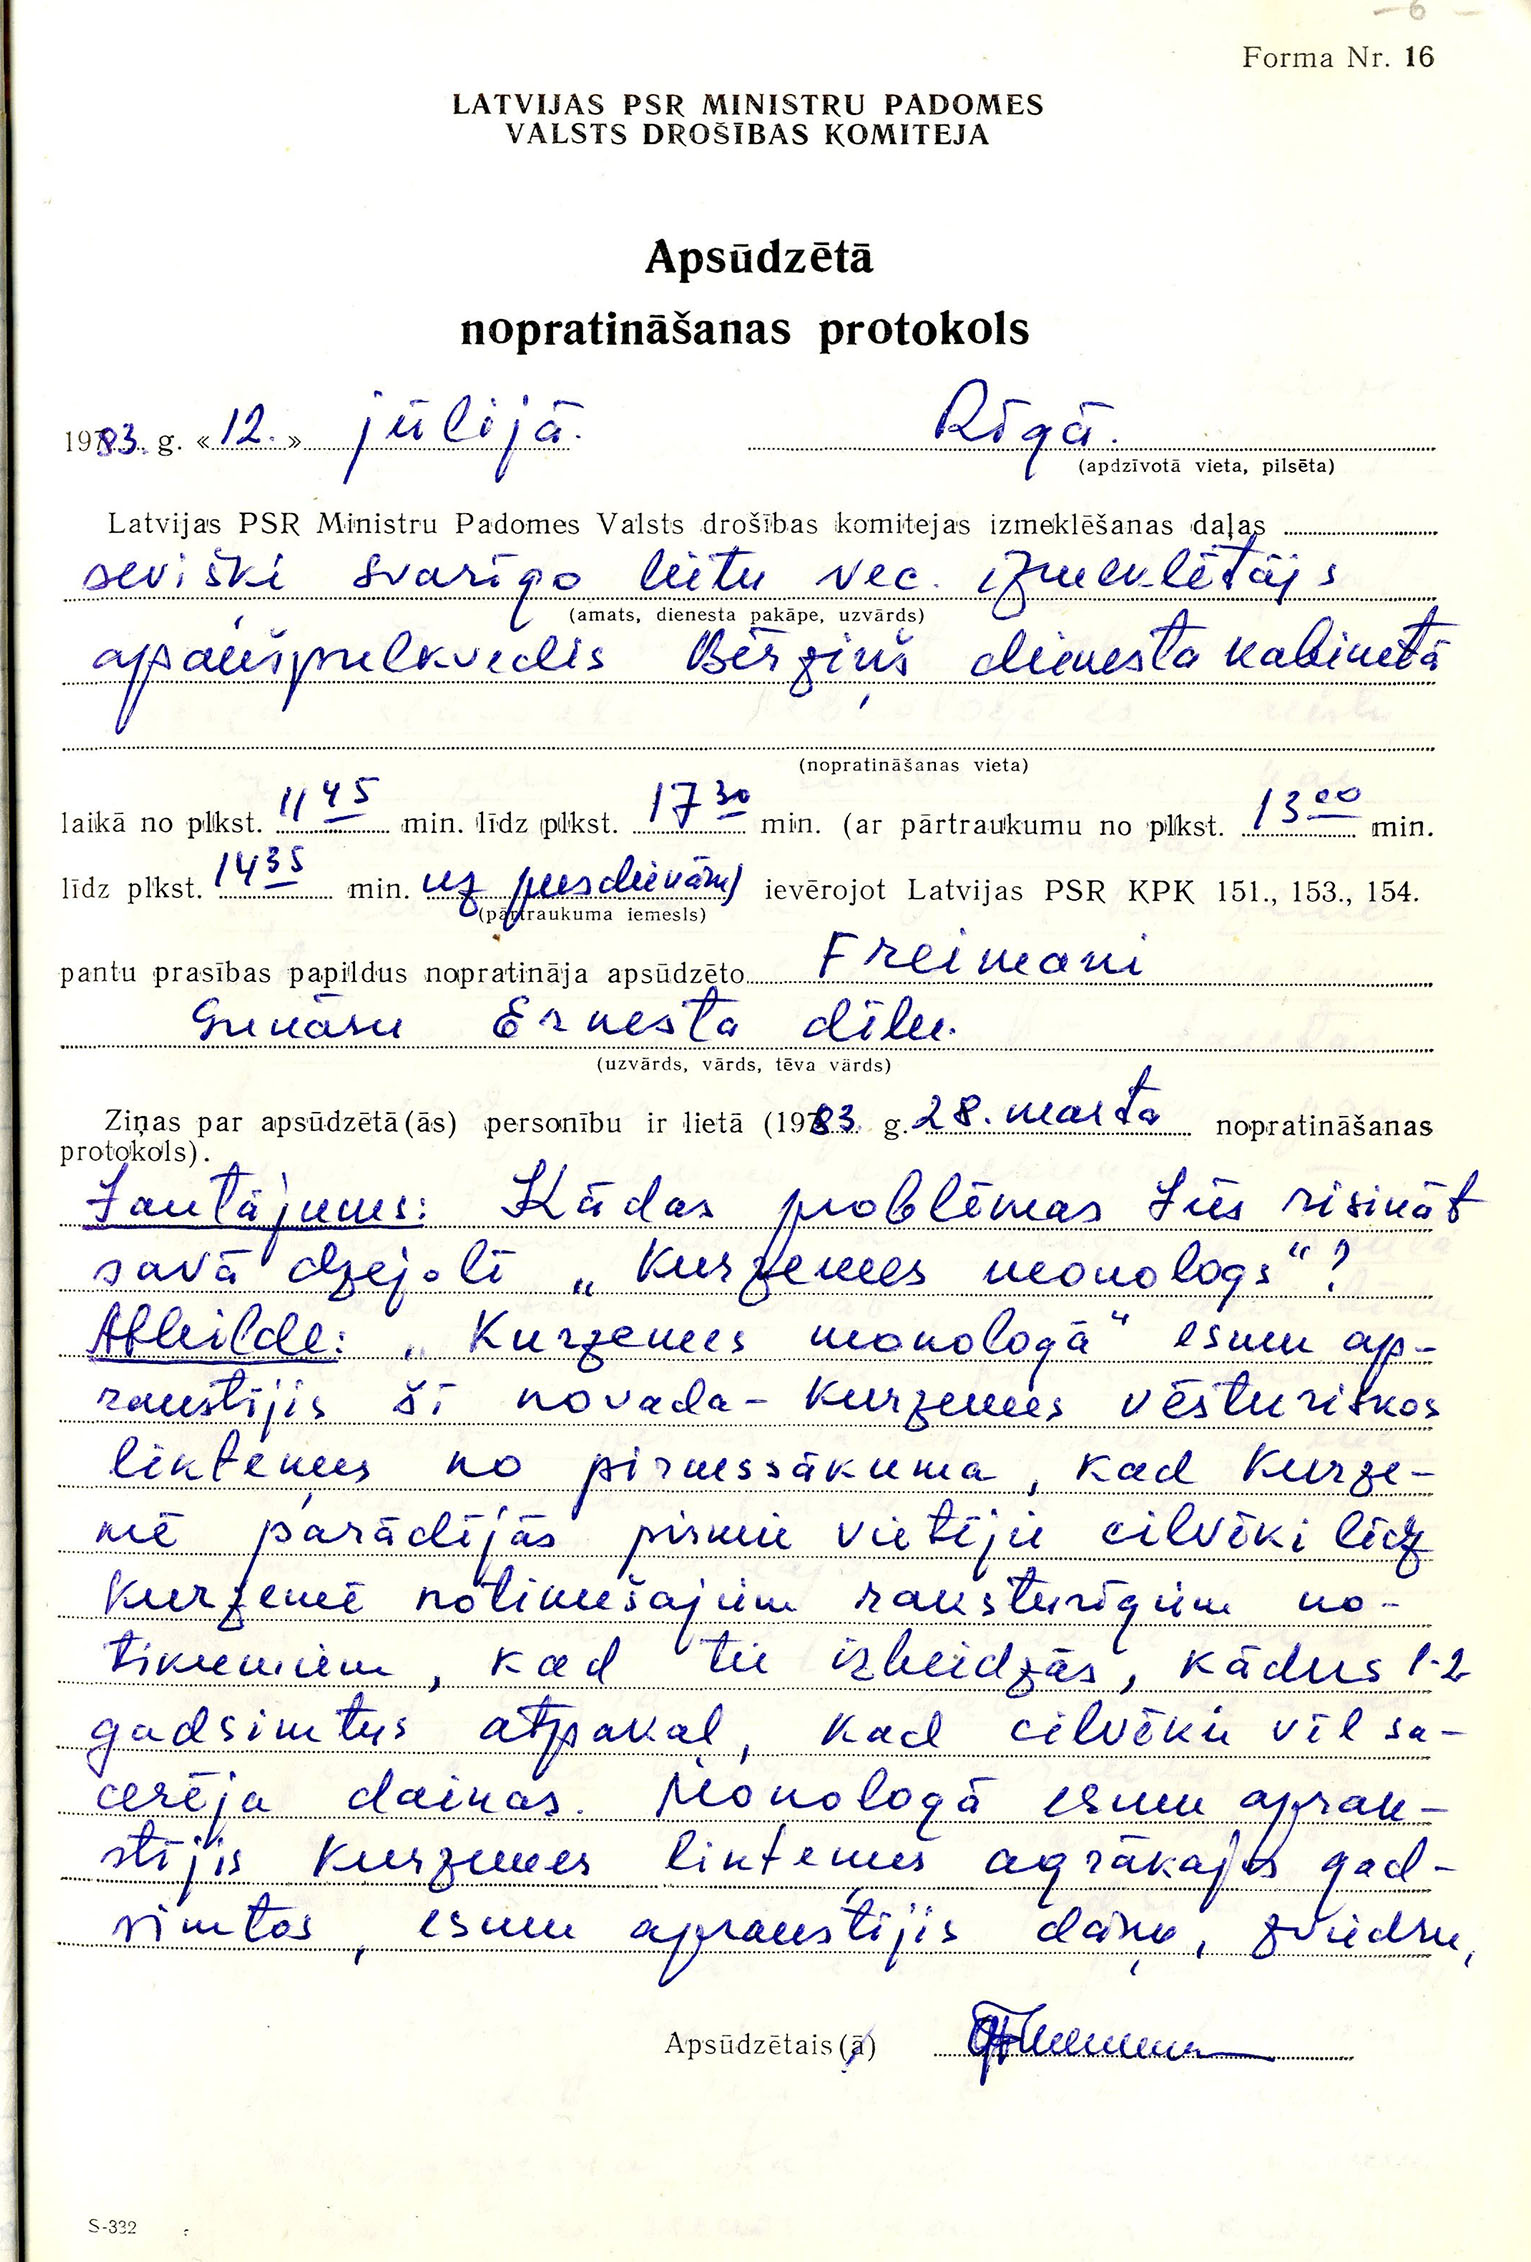 — 6 —
Forma Nr. 16
LATVIJAS PSR MINISTRU PADOMES
VALSTS DROŠĪBAS KOMITEJA
Apsūdzētā
nopratināšanas protokols
1983. g. «12.» jūlijā. Rīgā.
(apdzīvotā vieta, pilsēta)
Latvijas PSR Ministru Padomes Valsts drošības komitejas izmeklēšanas daļas
seviški svarīgo lietu vec. izmeklētājs
(amats, dienesta pakāpe, uzvārds)
apakšpulkvedis Bērziņš dienesta kabinetā
(nopratināšanas vieta)
laikā no plkst. 11 45 min. līdz plkst. 17 30 min. (ar pārtraukumu no plkst. 13 00 min.
līdz plkst. 14 35 min. uz pusdienām) ievērojot Latvijas PSR KPK 151., 153., 154.
(pārtraukuma iemesls)
pantu prasības papildus nopratināja apsūdzēto Freimani
Gunāru Ernesta dēlu.
(uzvārds, vārds, tēva vārds)
Ziņas par apsūdzētā(ās) personību ir lietā (1983. g. 28. marta nopratināšanas
protokols).
Jautājums: Kādas problēmas Jūs risināt
savā dzejolī „Kurzemes monologs“?
Atbilde: „Kurzemes monologā“ esmu ap-
rakstījis šī novada - Kurzemes vēsturiskos
likteņus no pirmssākuma, kad Kurze-
mē parādījās pirmie vietējie cilvēki līdz
Kurzemē notikušajiem raksturīgiem no-
tikumiem, kad tie izbeidzās, kādus 1-2
gadsimtus atpakaļ, kad cilvēki vēl sa-
cerēja dainas. Monologā esmu aprak-
stījis Kurzemes likteņus agrākajos gad-
simtos, esmu aprakstījis dāņu, zviedru,
Apsūdzētais(ā)
S-332